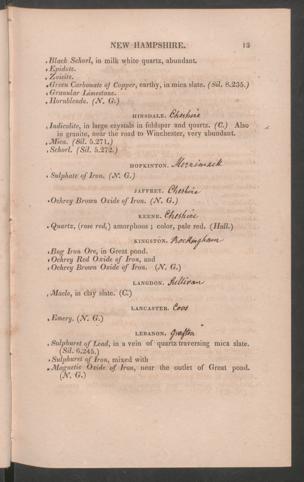 NEW HAMPSHIRE. 13
Black Schorl, in milk white quartz, abundant.
Epidote.
Zoisite.
Green Carbonate of Copper, earthy, in mica slate. (Sil. 8.235.)
Granular Limestone.
Hornblende. (N. G.)
HINSDALE. Cheshire
Indicolite, in large crystals in feldspar and quartz. (C.) Also
in granite, near the road to Winchester, very abundant.
Mica. (Sil. 5.271.)
Schorl. (Sil. 5.272.)
HOPKINTON. Merrimack
Sulphate of Iron. (N. G.)
JAFFREY. Cheshire
Ochrey Brown Oxide of Iron. (N. G.)
KEENE. Cheshire
Quartz, (rose red,) amorphous; color, pale red. (Hall.)
KINGSTON. Rockingham
Bog Iron Ore, in Great pond.
Ochrey Red Oxide of Iron, and
Ochrey Brown Oxide of Iron. (N. G.)
LANGDON. Sullivan
Macle, in clay slate. (C.)
LANCASTER. Coos
Emery. (N. G.)
LEBANON. Grafton
Sulphuret of Lead, in a vein of quartz traversing mica slate.
(Sil. 6.245.)
Sulphuret of Iron, mixed with
Magnetic Oxide of Iron, near the outlet of Great pond.
(N. G.)